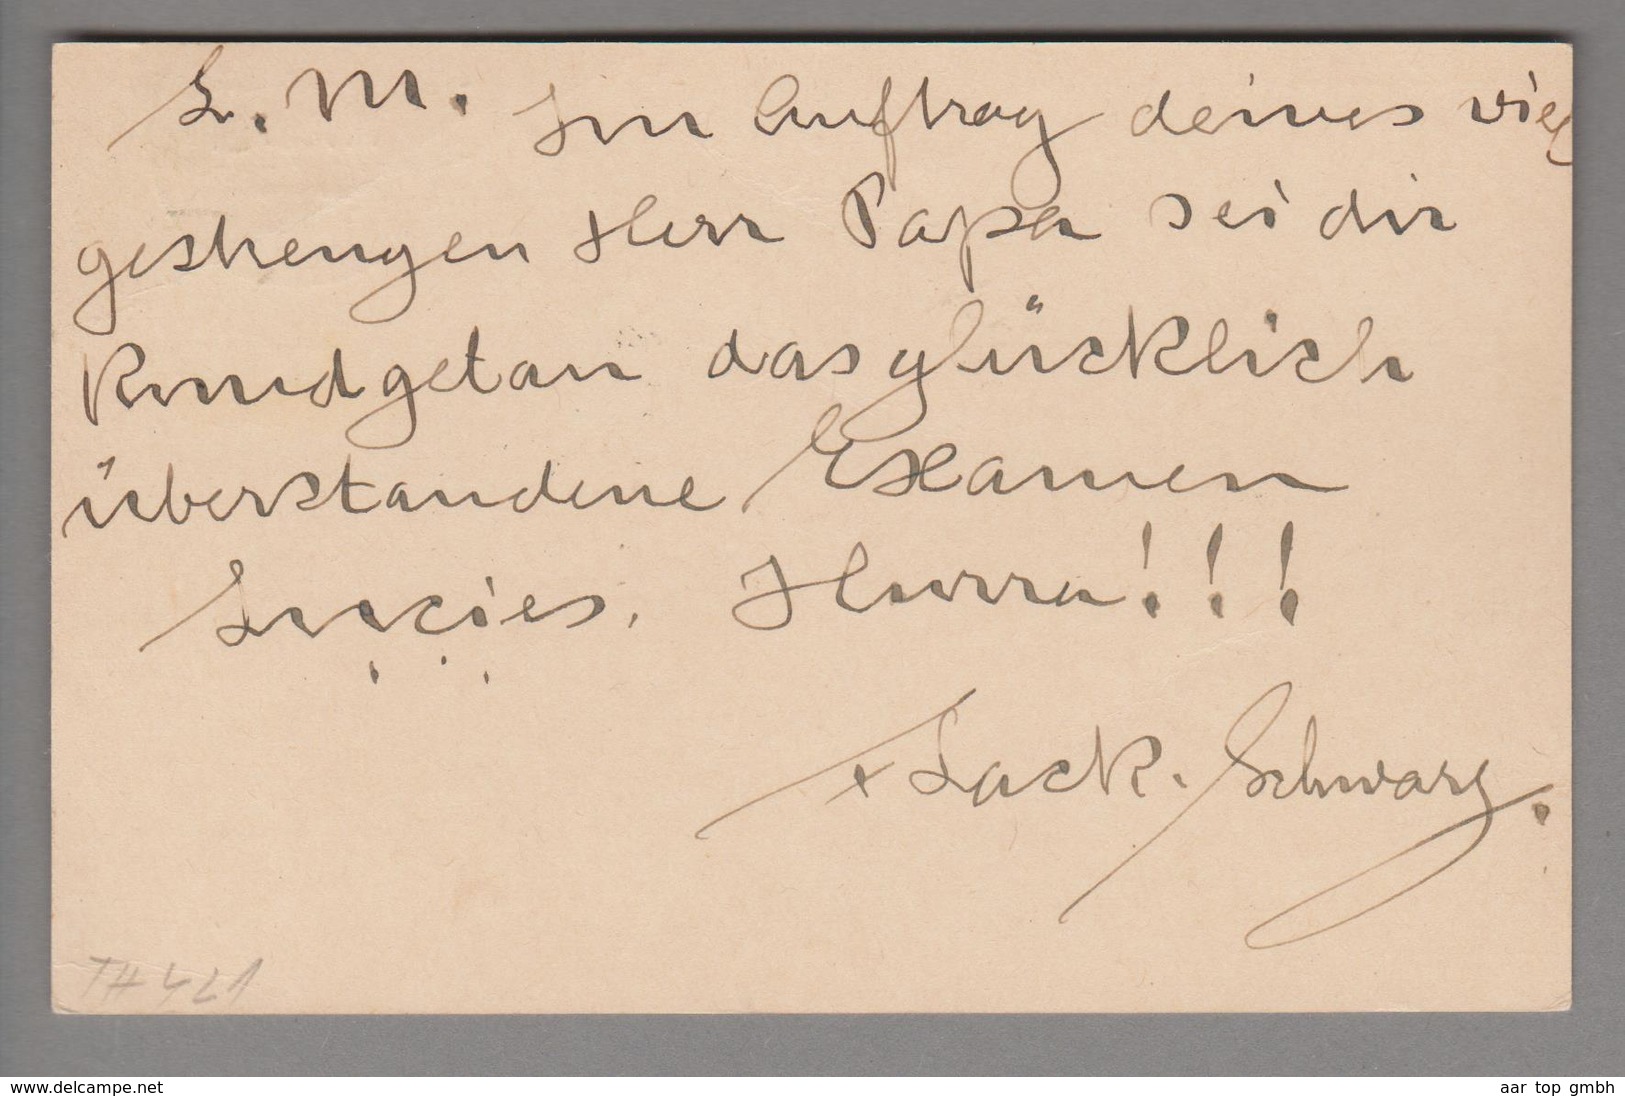 L. M. Im Auftrag deines viel
gestrengen Herr Papa sei dir
Kundgetan das glücklich
überstandene Examen
Luzies. Hurra!!!
Lack. Schwarz.
TH 421
www.delcampe.net
aar top gmbh